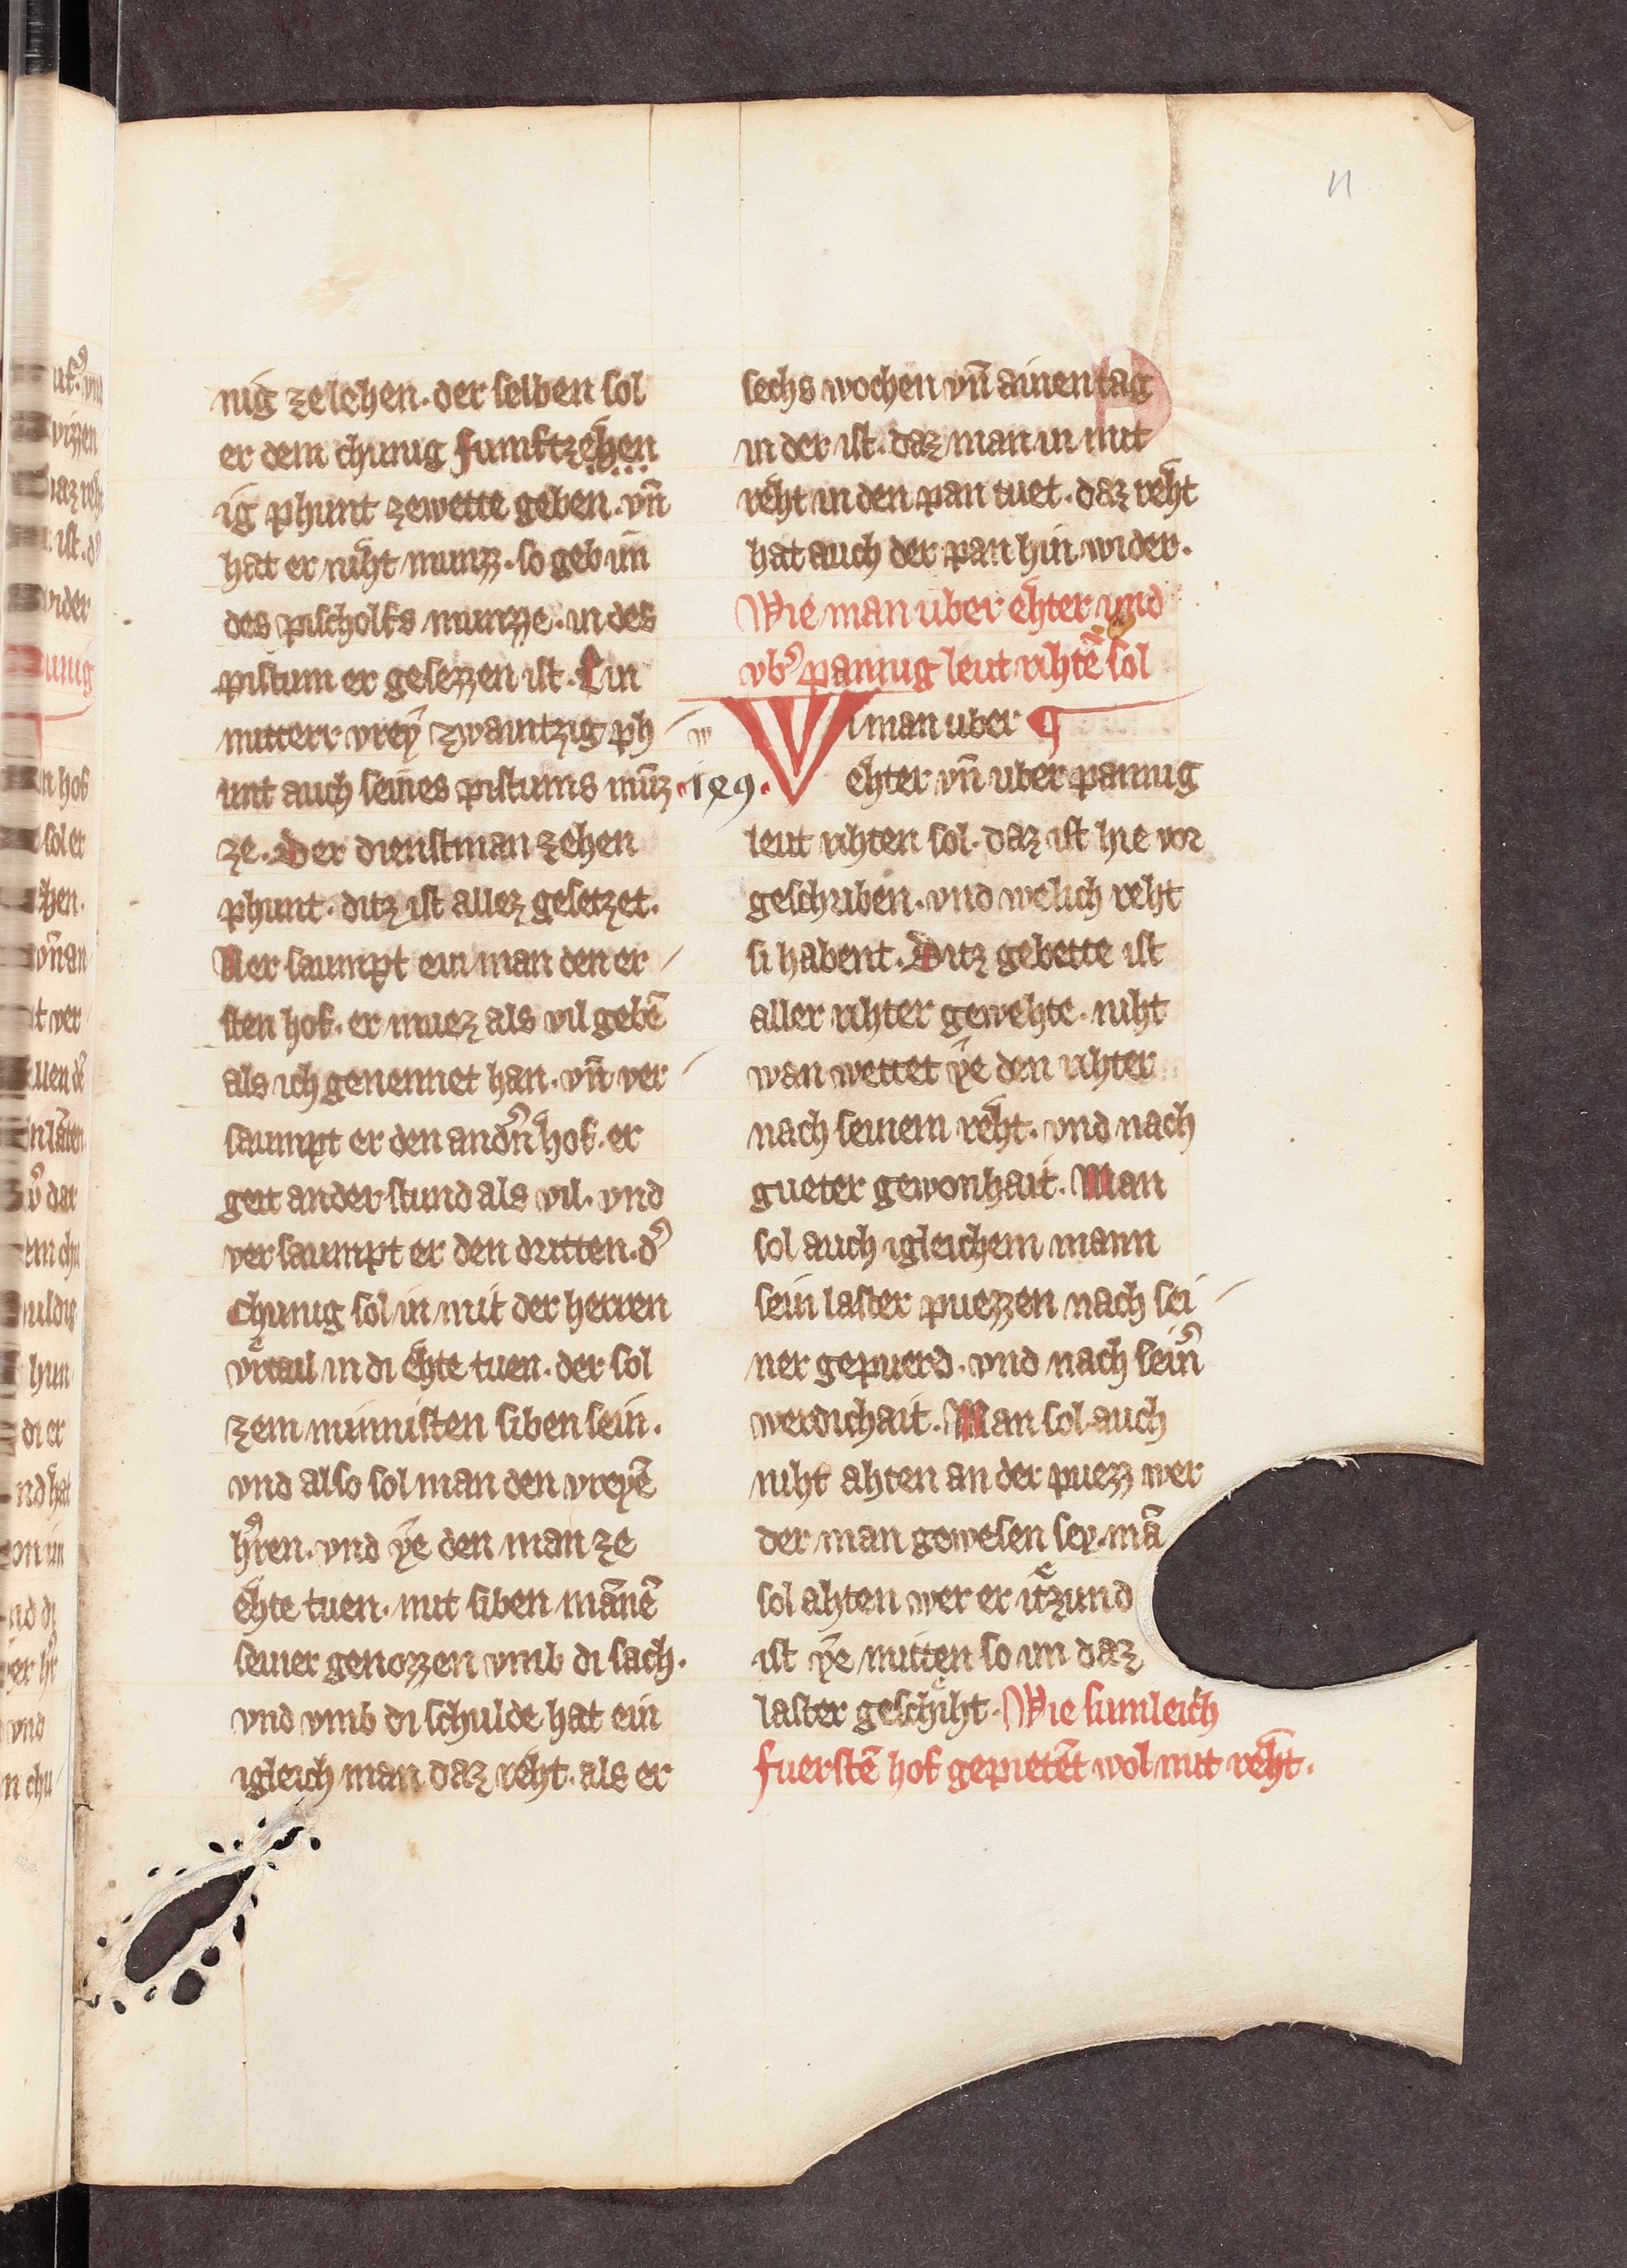 11
nig ze lehen. der selben sol
er dem chunig funiktzehen
ig phunt ze wette geben. vn̄
hat er niht munzz. so geb im
des pischolfs munzze. in des
pistum er gesezzen ist. Ein
mitterr vreӱ zwaintzig ph
unt auch seines pistums mūz
ze. Der dienstman zehen
phunt. ditz ist allez gesetzet.
Ver saumpt ein man den er
sten hof. er muez als vil gebē
als ich genennet han. vn̄ ver
saumpt er den andn̄ hof. er
geit ander stund als vil. vnd
versaumpt er den dritten. d᾽
chunig sol in mit der herren
vrtail in di ehte tuen. der sol
zem minnisten siben sein.
vnd also sol man den vreyē
h᾽ren. vnd ӱe den man ze
ehte tuen. mit siben mānē
seiner genozzen vmb di sach.
vnd vmb di schulde hat ein
igleich man daz reht. als er
sechs wochen vn̄ ainen tag
in der ist. daz man in mit
reht in den pan tuet. daz reht
hat auch der pan hin wider.
Wie man uber ehter und
vb᾽ pannig leut rihtē sol
w
.1ꝭ9.
Wi man uber
ehter vn̄ uber pannig
leut rihten sol. daz ist hie vor
geschriben. vnd welich reht
si habent. Ditz gebette ist
aller rihter gewehte. niht
wan wettet ӱe den rihter
nach seinem reht. vnd nach
gueter gewonhait. Man
sol auch igleichem mann
sein laster puezzen nach sei
ner gepuerd. vnd nach sein᾽
werdichait. Man sol auch
niht ahten an der puezz wer
der man gewesen sey. mā
sol ahten wer er itzund
ist ӱe mitten so im daz
laster geschiht. Wie sumleich
fuerstē hof gepietēt wol mit reht.